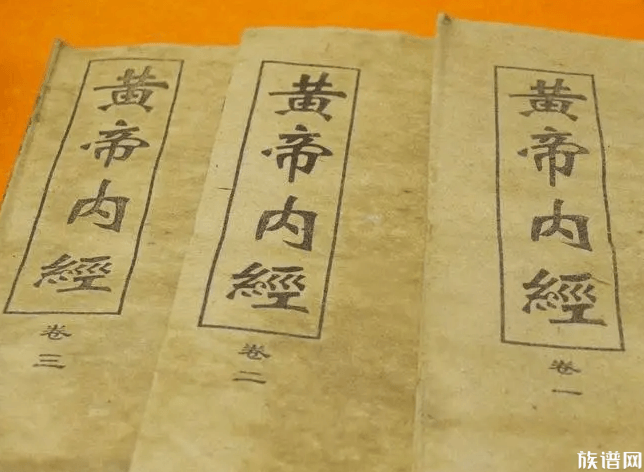 黄帝内經
卷一
黄帝内經
卷二
黄帝内經
卷三
族谱网